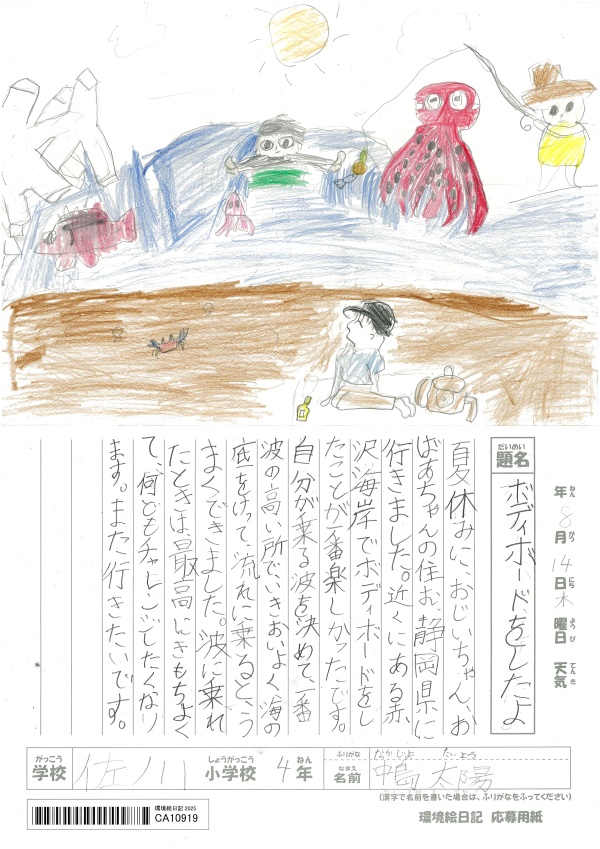 だいめい
題名
ボディボードをしたよ
年 ねん 8月 がつ 14日 にち 木曜日 ようび 天気 てんき
夏休みに、おじいちゃん、お
ばあちゃんの住む、静岡県に
行きました。近くにある赤
沢海岸でボディボードをし
たことが一番楽しかったです。
自分が乗る波を決めて、一番
波の高い所で、いきおいよく、海の
底をけって、流れに乗ると、う
まくできました。波に乗れ
たときは最高にきもちよく
て、何どもチャレンジしたくなり
ます。また行きたいです。
がっこう しょうがっこう ねん ふりがな なかじま たいよう
学校 佐ノ川 小学校 4年 なまえ 名前 中島 太陽
(漢字で名前を書いた場合は、ふりがなをふってください)
環境絵日記 2025
CA10919
環境絵日記 応募用紙